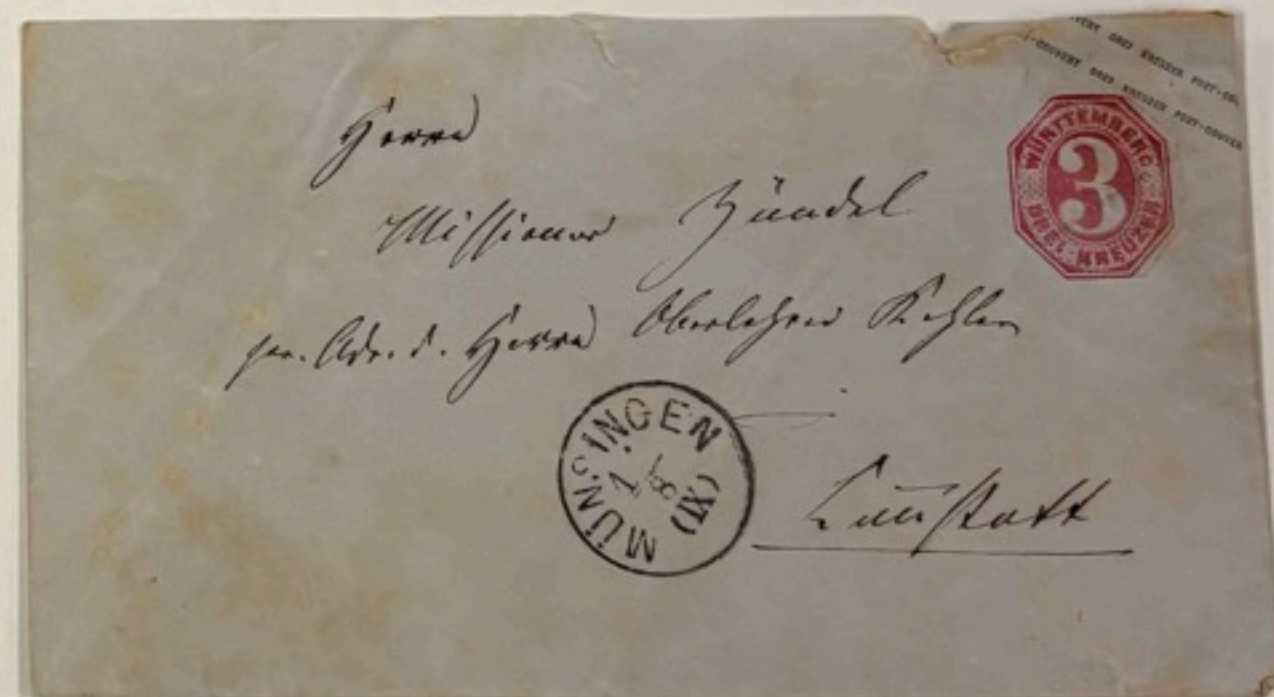 VERT DREI KREUZER POST-COU
-COUVERT DREI KREUZER POST-COUVER
WÜRTTEMBERG
3
DREI KREUZER
Herrn
Missionar Zündel
pr. Adr. d. Herrn Oberlehrer Kehler
MÜNSINGEN
1/8
(XI)
Cannstatt